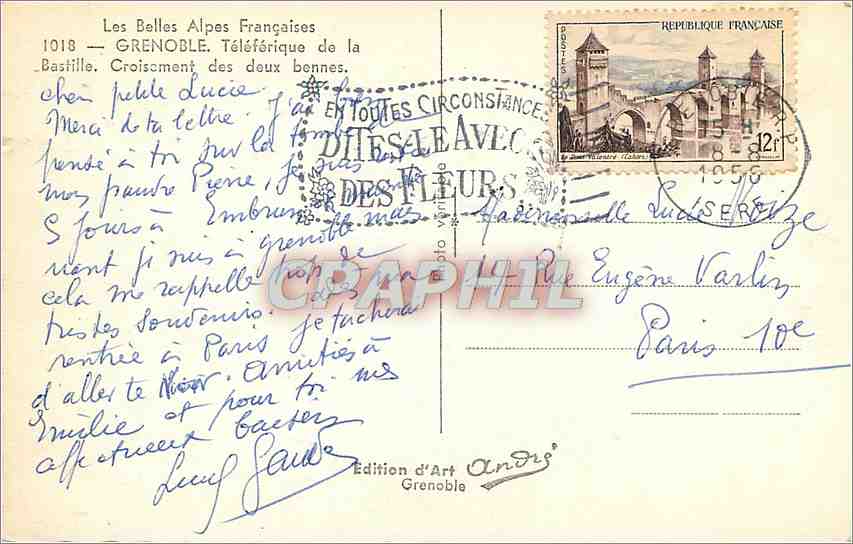 Les Belles Alpes Françaises
1018 — GRENOBLE. Téléférique de la
Bastille. Croisement des deux bennes.
chère petite Lucie
Merci de ta lettre. J'ai bien
pensé à toi sur la tombe de
mon pauvre Pierre, je suis restée
5 jours à Embrun, mainte
nant je suis à grenoble mais
cela me rappelle trop de
tristes souvenirs. dès ma
rentrée à Paris je tacherai
d'aller te voir. Amitiés à
Emilie et pour toi mes
affectueux baisers
EN TOUTES CIRCONSTANCES
DITES-LE AVEC
DES FLEURS
RÉPUBLIQUE FRANÇAISE
POSTES
Le Pont Valentré (Cahors)
12F
GRENOBLE R.P.
15 H
8 - 8
1956
ISERE
Photo véritable
Mademoiselle Lucie
14 Rue Eugène Varlin
Paris 10e
CPAPHIL
Edition d'Art André
Grenoble